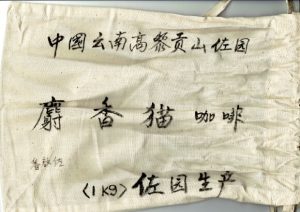 中国云南高黎贡山佐园
麝香猫咖啡
(1Kg)佐园生产